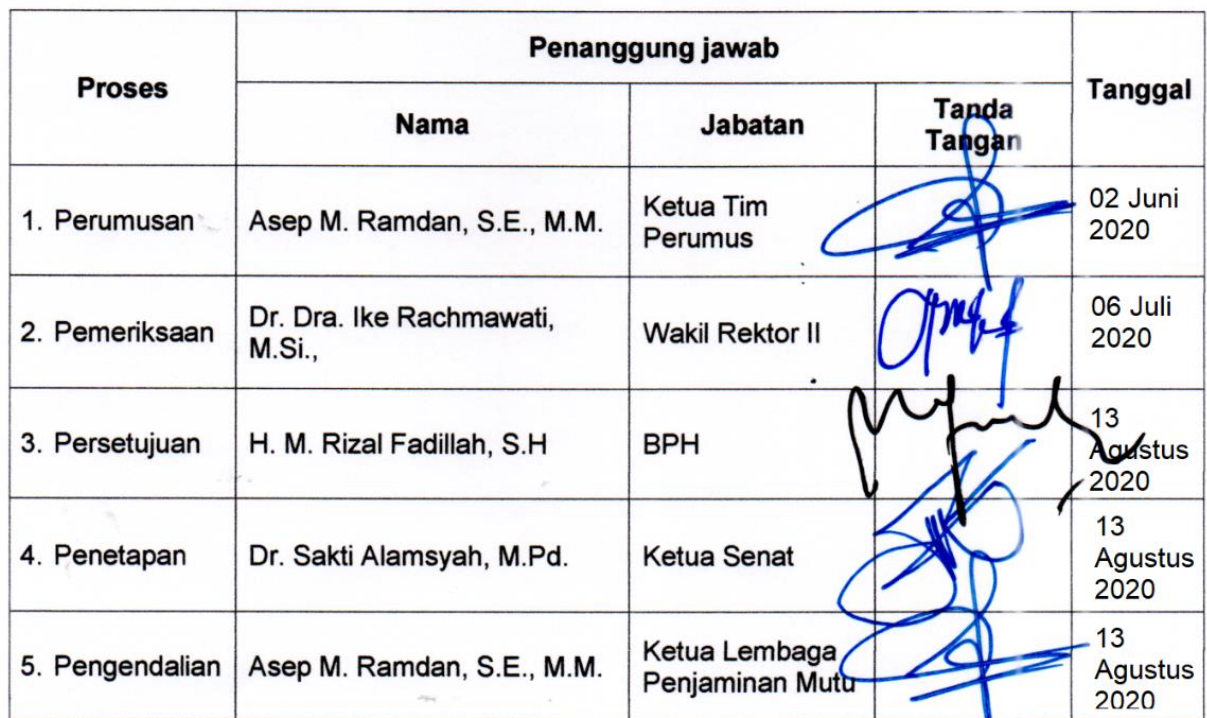 Proses
Penanggung jawab
Tanggal
Nama
Jabatan
Tanda
Tangan
1. Perumusan
Asep M. Ramdan, S.E., M.M.
Ketua Tim
Perumus
02 Juni
2020
2. Pemeriksaan
Dr. Dra. Ike Rachmawati,
M.Si.,
Wakil Rektor II
06 Juli
2020
3. Persetujuan
H. M. Rizal Fadillah, S.H
BPH
13
Agustus
2020
4. Penetapan
Dr. Sakti Alamsyah, M.Pd.
Ketua Senat
13
Agustus
2020
5. Pengendalian
Asep M. Ramdan, S.E., M.M.
Ketua Lembaga
Penjaminan Mutu
13
Agustus
2020